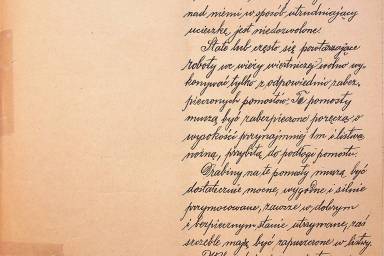 nad niemi w sposób utrudniający
ucieczkę jest niedozwolone.
Stale lub często się powtarzające
roboty we wieży wiertniczej wolno wy-
konywać tylko z odpowiednio zabez-
pieczonych pomostów. Te pomosty
muszą być zabezpieczone poręczą, o
wysokości przynajmniej 1m i listwą
nożną, przybitą do podłogi pomostu.
Drabiny na te pomosty muszą być
dostatecznie mocne, wygodne i silnie
przymocowane, zawsze w dobrym
i bezpiecznym stanie utrzymane, zaś
szczeble mają być zapuszczone w listwy.